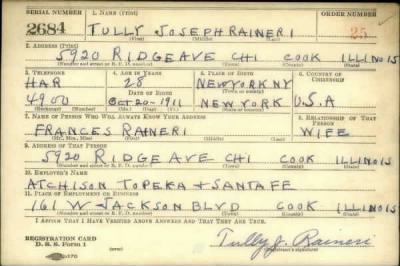 SERIAL NUMBER 1. NAME (Print) ORDER NUMBER
2684 TULLY JOSEPH RAINERI 25
(First) (Middle) (Last)
2. ADDRESS (Print)
5920 RIDGE AVE CHI COOK ILLINOIS
(Number and street or R. F. D. number) (Town) (County) (State)
3. TELEPHONE 4. AGE IN YEARS 5. PLACE OF BIRTH 6. COUNTRY OF CITIZENSHIP
HAR 28 NEW YORK NY
DATE OF BIRTH (Town or county)
4900 OCT-20-1911 NEW YORK U.S.A
(Exchange) (Number) (Mo.) (Day) (Yr.) (State or country)
7. NAME OF PERSON WHO WILL ALWAYS KNOW YOUR ADDRESS 8. RELATIONSHIP OF THAT PERSON
FRANCES RAINERI WIFE
(Mr., Mrs., Miss) (First) (Middle) (Last)
9. ADDRESS OF THAT PERSON
5920 RIDGE AVE CHI COOK ILLINOIS
(Number and street or R. F. D. number) (Town) (County) (State)
10. EMPLOYER'S NAME
ATCHISON TOPEKA + SANTA FE
11. PLACE OF EMPLOYMENT OR BUSINESS
161 W JACKSON BLVD COOK ILLINOIS
(Number and street or R. F. D. number) (Town) (County) (State)
I AFFIRM THAT I HAVE VERIFIED ABOVE ANSWERS AND THAT THEY ARE TRUE.
REGISTRATION CARD
D. S. S. Form 1 Tully J. Raineri
(Registrant's signature)